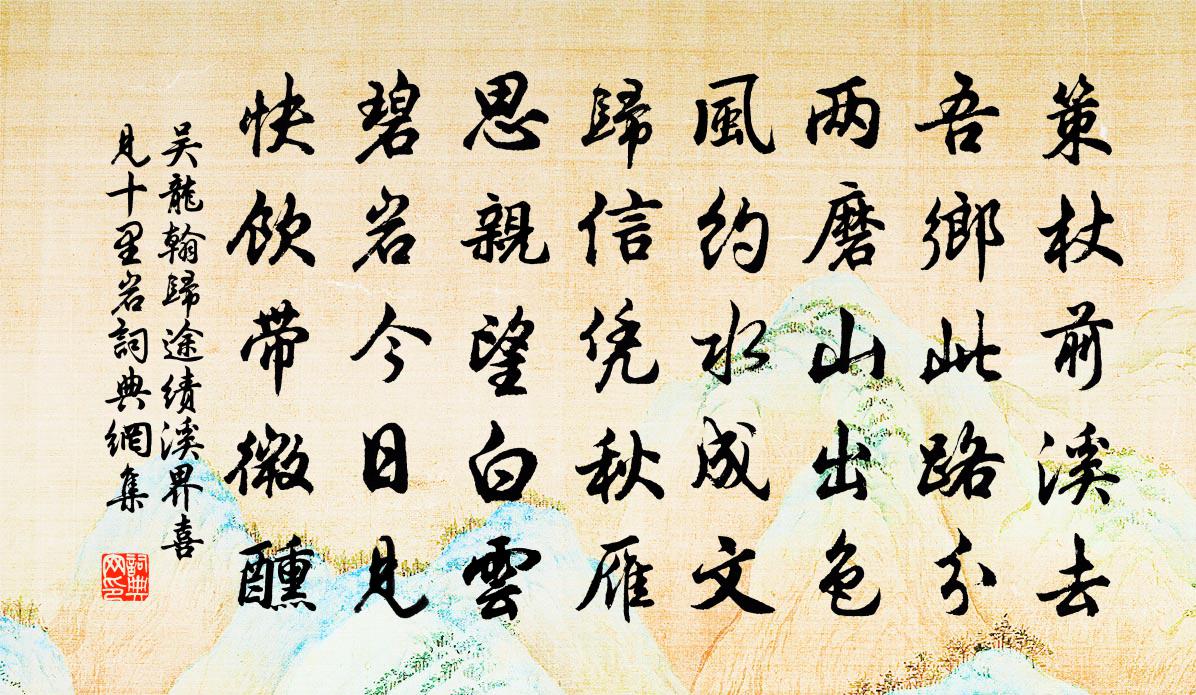 策杖前溪去
吾鄉此路分
两磨山出色
風約水成文
歸信凭秋雁
思親望白雲
碧岩今日見
快飲帶微醺
吴龍翰歸途績溪界喜
見十里岩詞典網集
詞典
网印